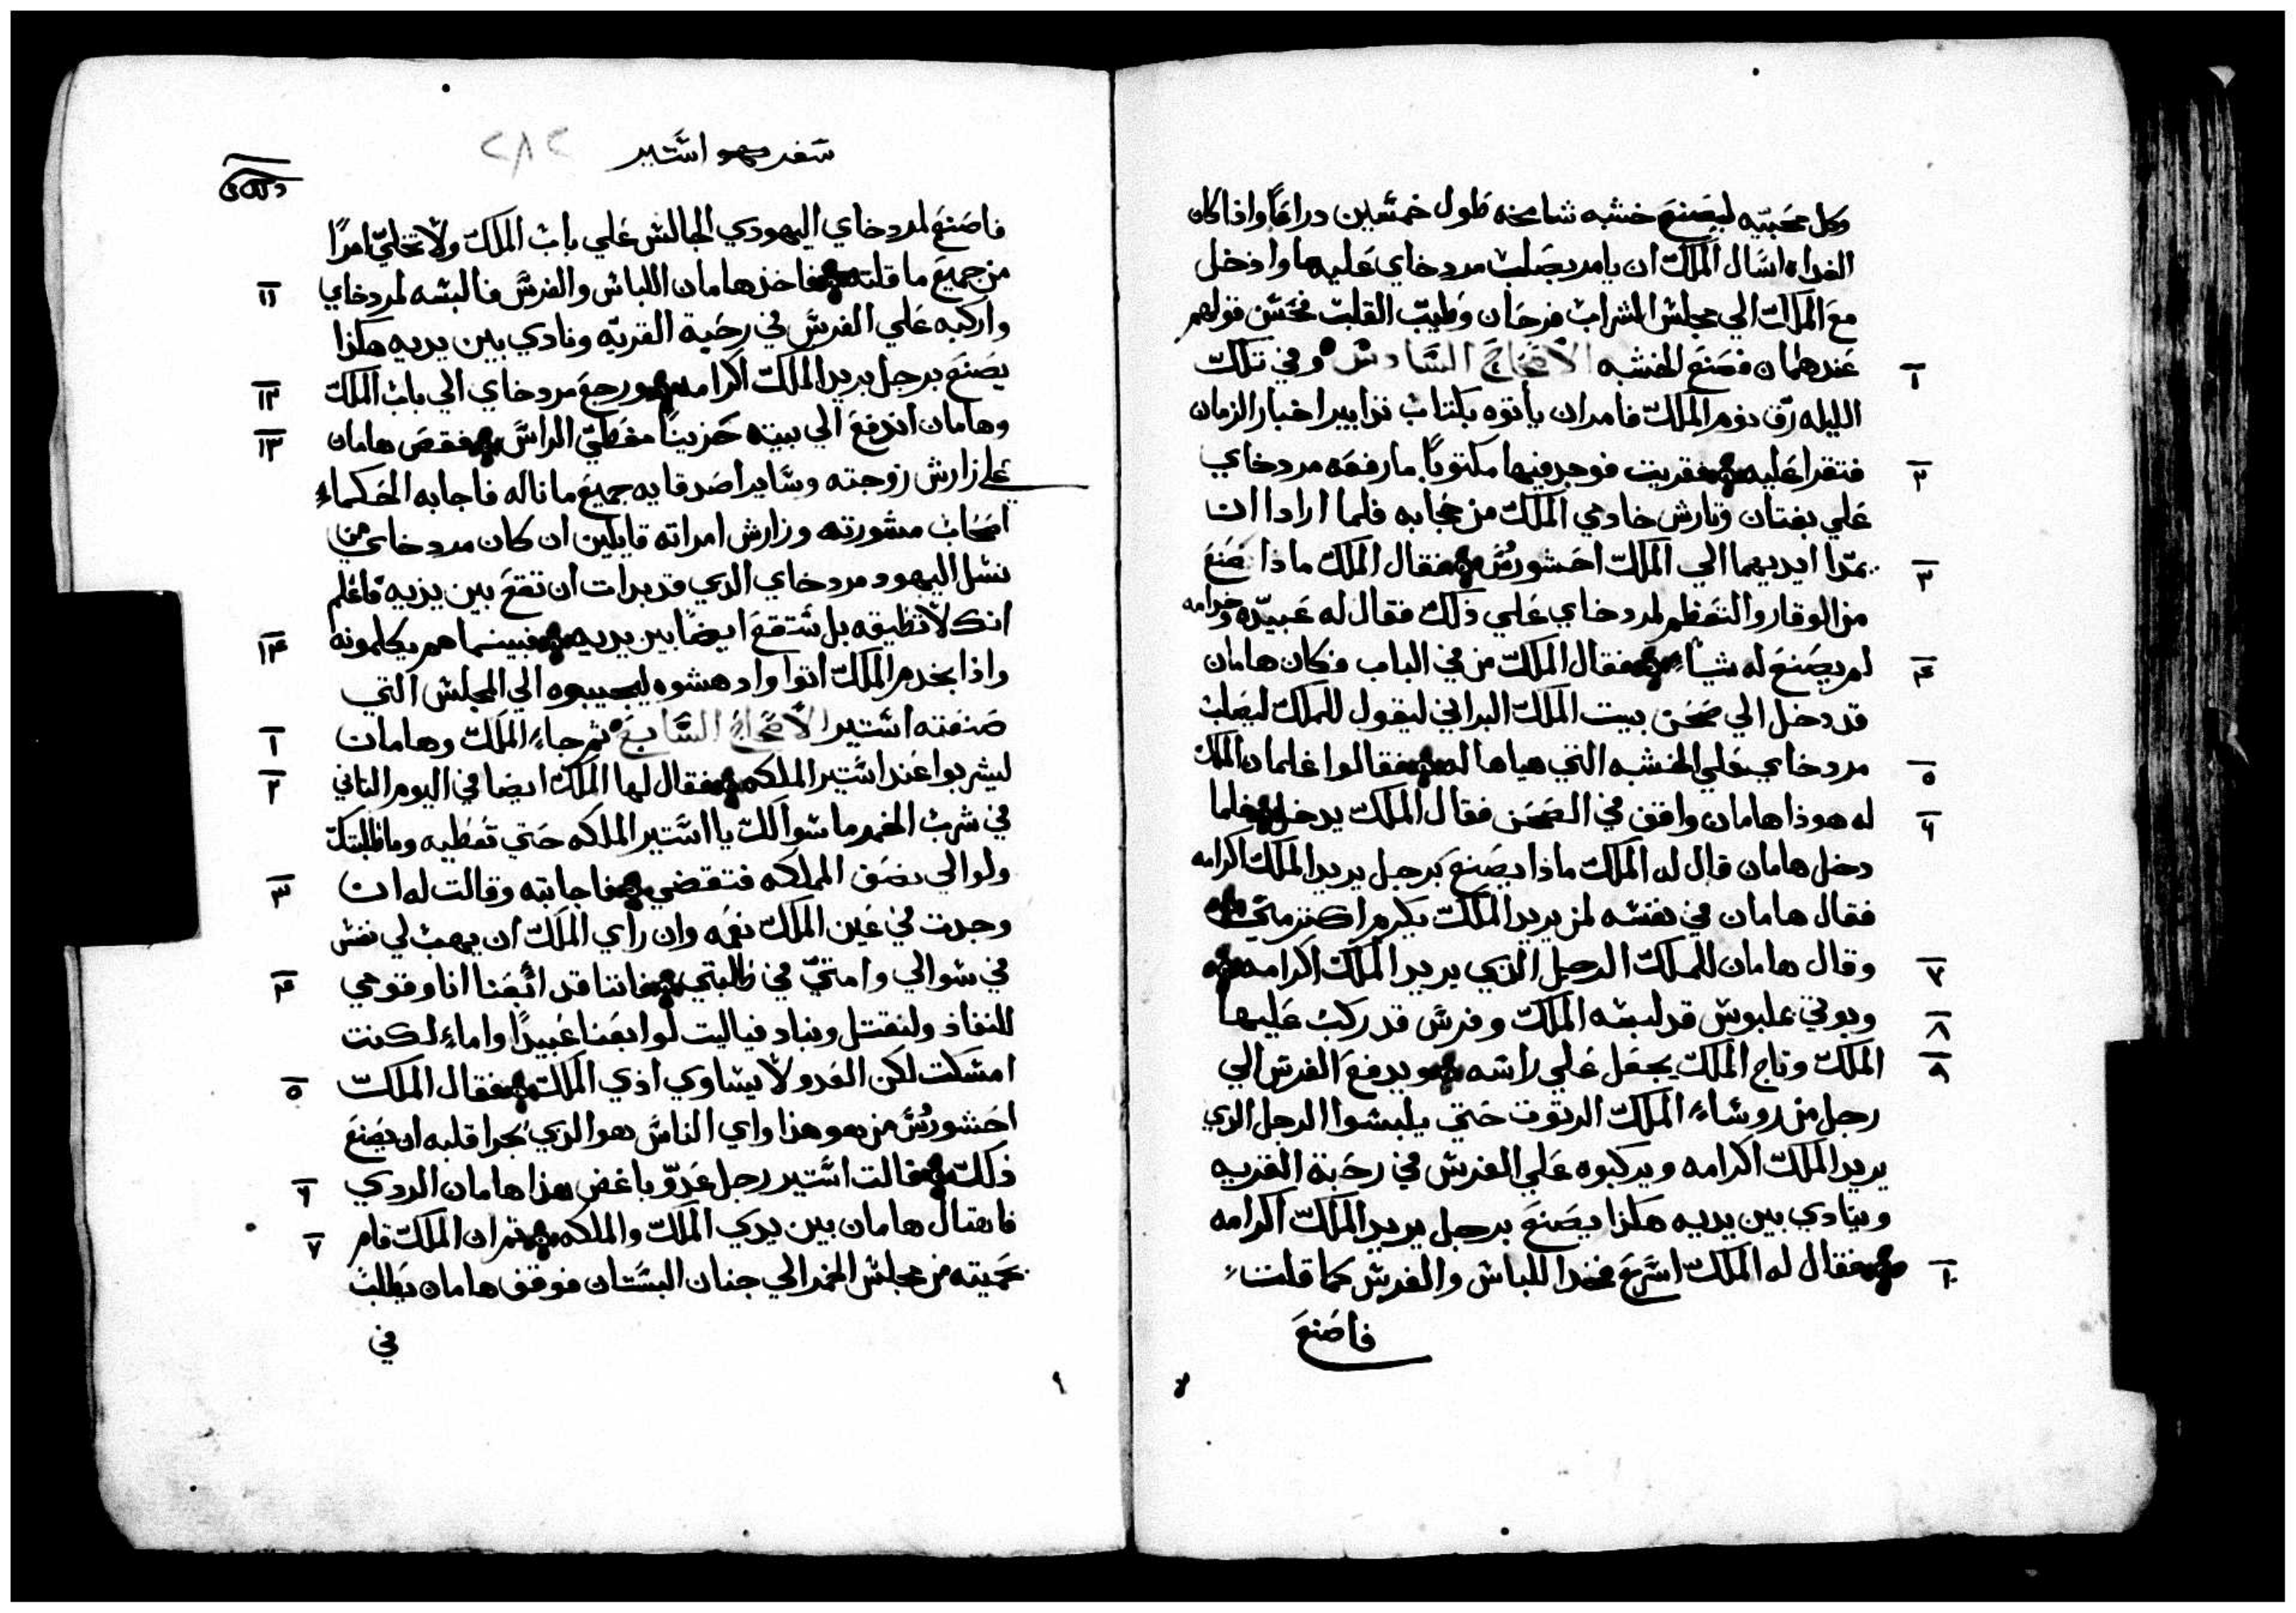 وكل محبيه ليصنع خشبه شامخه طول خمسين دراعًا واذا كان
الغداه اسال الملك ان يامر بصلب مردخاي عليها وادخل
مع الملك الي مجلس الشراب فرحان وطيب القلب فحسن قولهم
عند هامان فصنع الخشبه الاصحاح السادس وفي تلك
١
الليله رق نوم الملك فامر ان يأتوه بكتاب تواريخ اخبار الزمان
فتقرا عليه فقريت فوجد فيها مكتوبًا ما رفعه مردخاي
٢
علي بغتان وتارش خادمي الملك من حجابه فلما ارادا ان
يمدا ايديهما الي الملك احشورش فقال الملك ماذا صنع
٣
من الوقار والتعظم لمردخاي علي ذلك فقال له عبيده وخدامه
لم يصنع له شياء فقال الملك من في الباب وكان هامان
٤
قد دخل الي صحن بيت الملك البراني ليقول للملك ليصلب
مردخاي علي الخشبه التي هياها له فقالوا غلمان الملك
٥
له هوذا هامان واقف في الصحن فقال الملك يدخل فلما
٦
دخل هامان قال له الملك ماذا يصنع برجل يريد الملك اكرامه
فقال هامان في نفسه لمن يريد الملك يكرم اكتر مني
وقال هامان للملك الرجل الذي يريد الملك اكرامه
٧
ويوتي بملبوس قد لبسه الملك وفرس قد ركب عليها
٨
الملك وتاج الملك يجعل علي راسه ويدفع الفرس الي
٩
رجل من روساء الملك الرتوت حتي يلبسوا الرجل الذي
يريد الملك اكرامه ويركبوه علي الفرس في رحبة القريه
وينادي بين يديه هكذا يصنع برجل يريد الملك اكرامه
فقال له الملك اسرع فخد اللباس والفرس كما قلت
١٠
فاصنع
سفر استير
٢٨٢
فاصنع لمردخاي اليهودي الجالس علي باب الملك ولا تخلي امرًا
من جميع ما قلته فاخذ هامان اللباس والفرس فالبسه لمردخاي
١١
واركبه علي الفرس في رحبة القريه ونادي بين يديه هكذا
يصنع برجل يريد الملك اكرامه ورجع مردخاي الي باب الملك
١٢
وهامان اندفع الي بيته حزينًا مغطي الراس فقص هامان
١٣
علي زارش زوجته وساير اصدقايه جميع ما ناله فاجابه الحكماء
اصحاب مشورته وزارش امراته قايلين ان كان مردخاي من
نسل اليهود مردخاي الدي قد بدات ان تقع بين يديه فاعلم
انك لا تطيقه بل ستقع ايضًا بين يديه فبينما هم يكلمونه
١٤
واذا بخدم الملك اتوا وادهشوه ليجيبوه الي المجلس التي
صنعته استير الاصحاح السابع ثم جاء الملك وهامان
١
ليشربوا عند استير الملكه فقال لها الملك ايضا في اليوم التاني
٢
في شرب الخمر ما سوالك يا استير الملكه حتي تعطيه وما طلبتك
ولو الي نصف المملكه فتقضي فاجابته وقالت له ان
٣
وجدت في عين الملك نعمه وان راي الملك ان يهب لي نفسي
في سوالي وامتي في طلبتي فاننا قد اتبعنا انا وقومي
٤
للنفاذ ولنقتل ونباد فياليت لو ابعنا عبيدًا واماء لكنت
امسكت لكن العدو لا يساوي اذي الملك فقال الملك
٥
احشورش من هو هذا واي الناس هو الذي جرا قلبه ان يصنع
ذلك فقالت استير رجل عدو باغض هذا هامان الردي
٦
فاهتال هامان بين يدي الملك والملكه ثم ان الملك قام
٧
بحميته من مجلس الخمر الي جنان البستان فوقف هامان يطلب
في